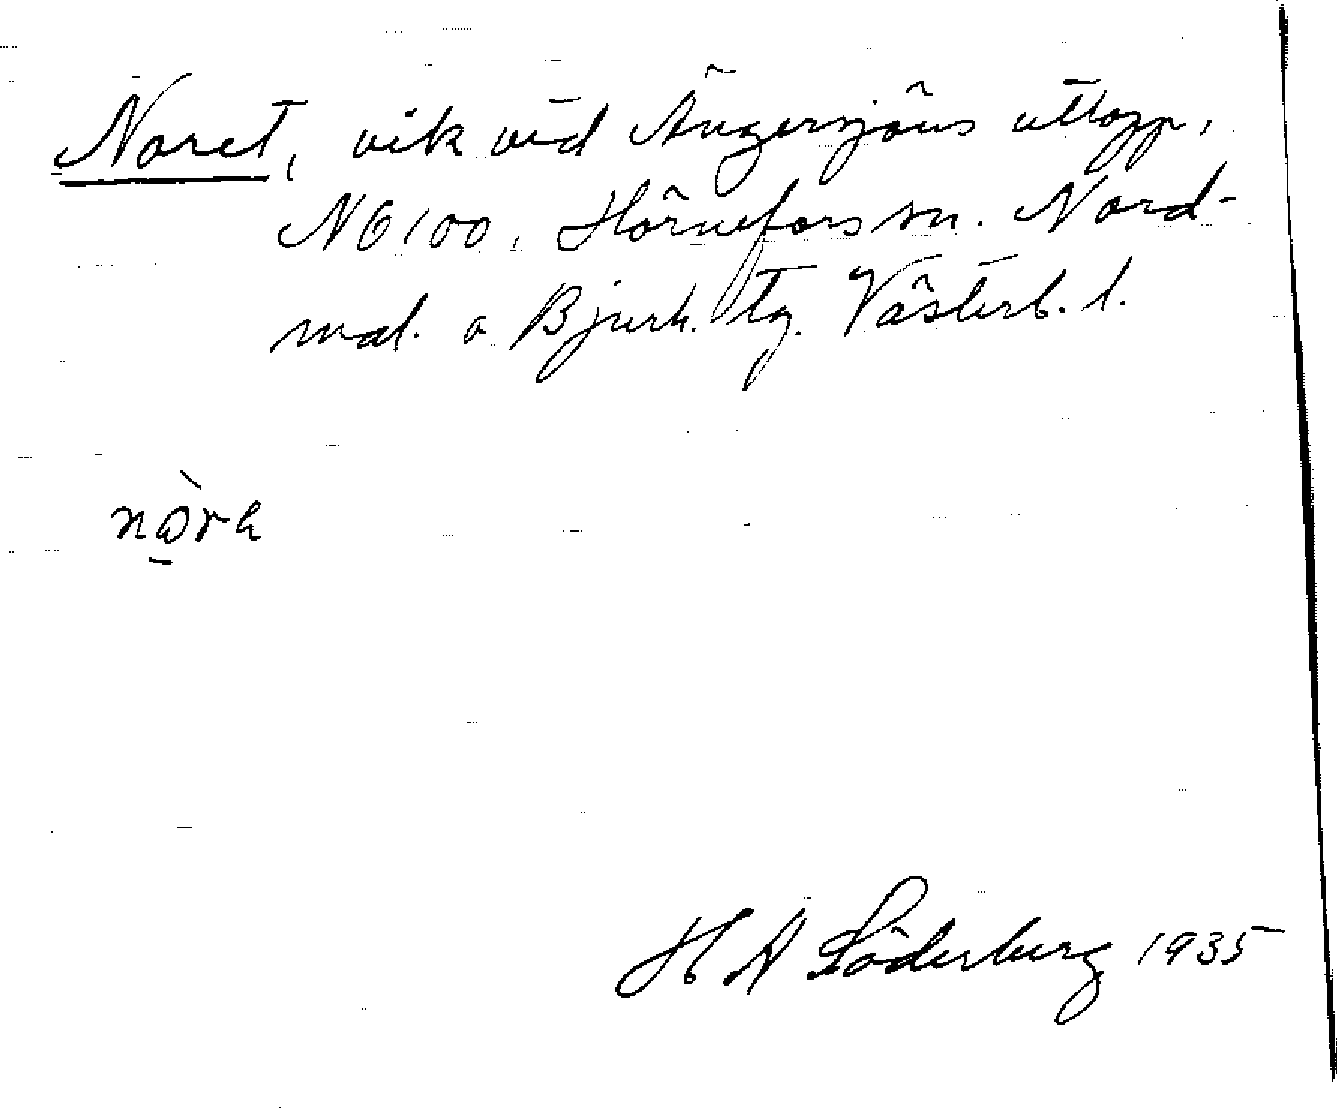 Noret, vik vid Ängersjöns utlopp,
N 6100, Hörnefors sn. Nord-
mal. o Bjurh. tg. Västerb. l.
H A Söderberg 1935